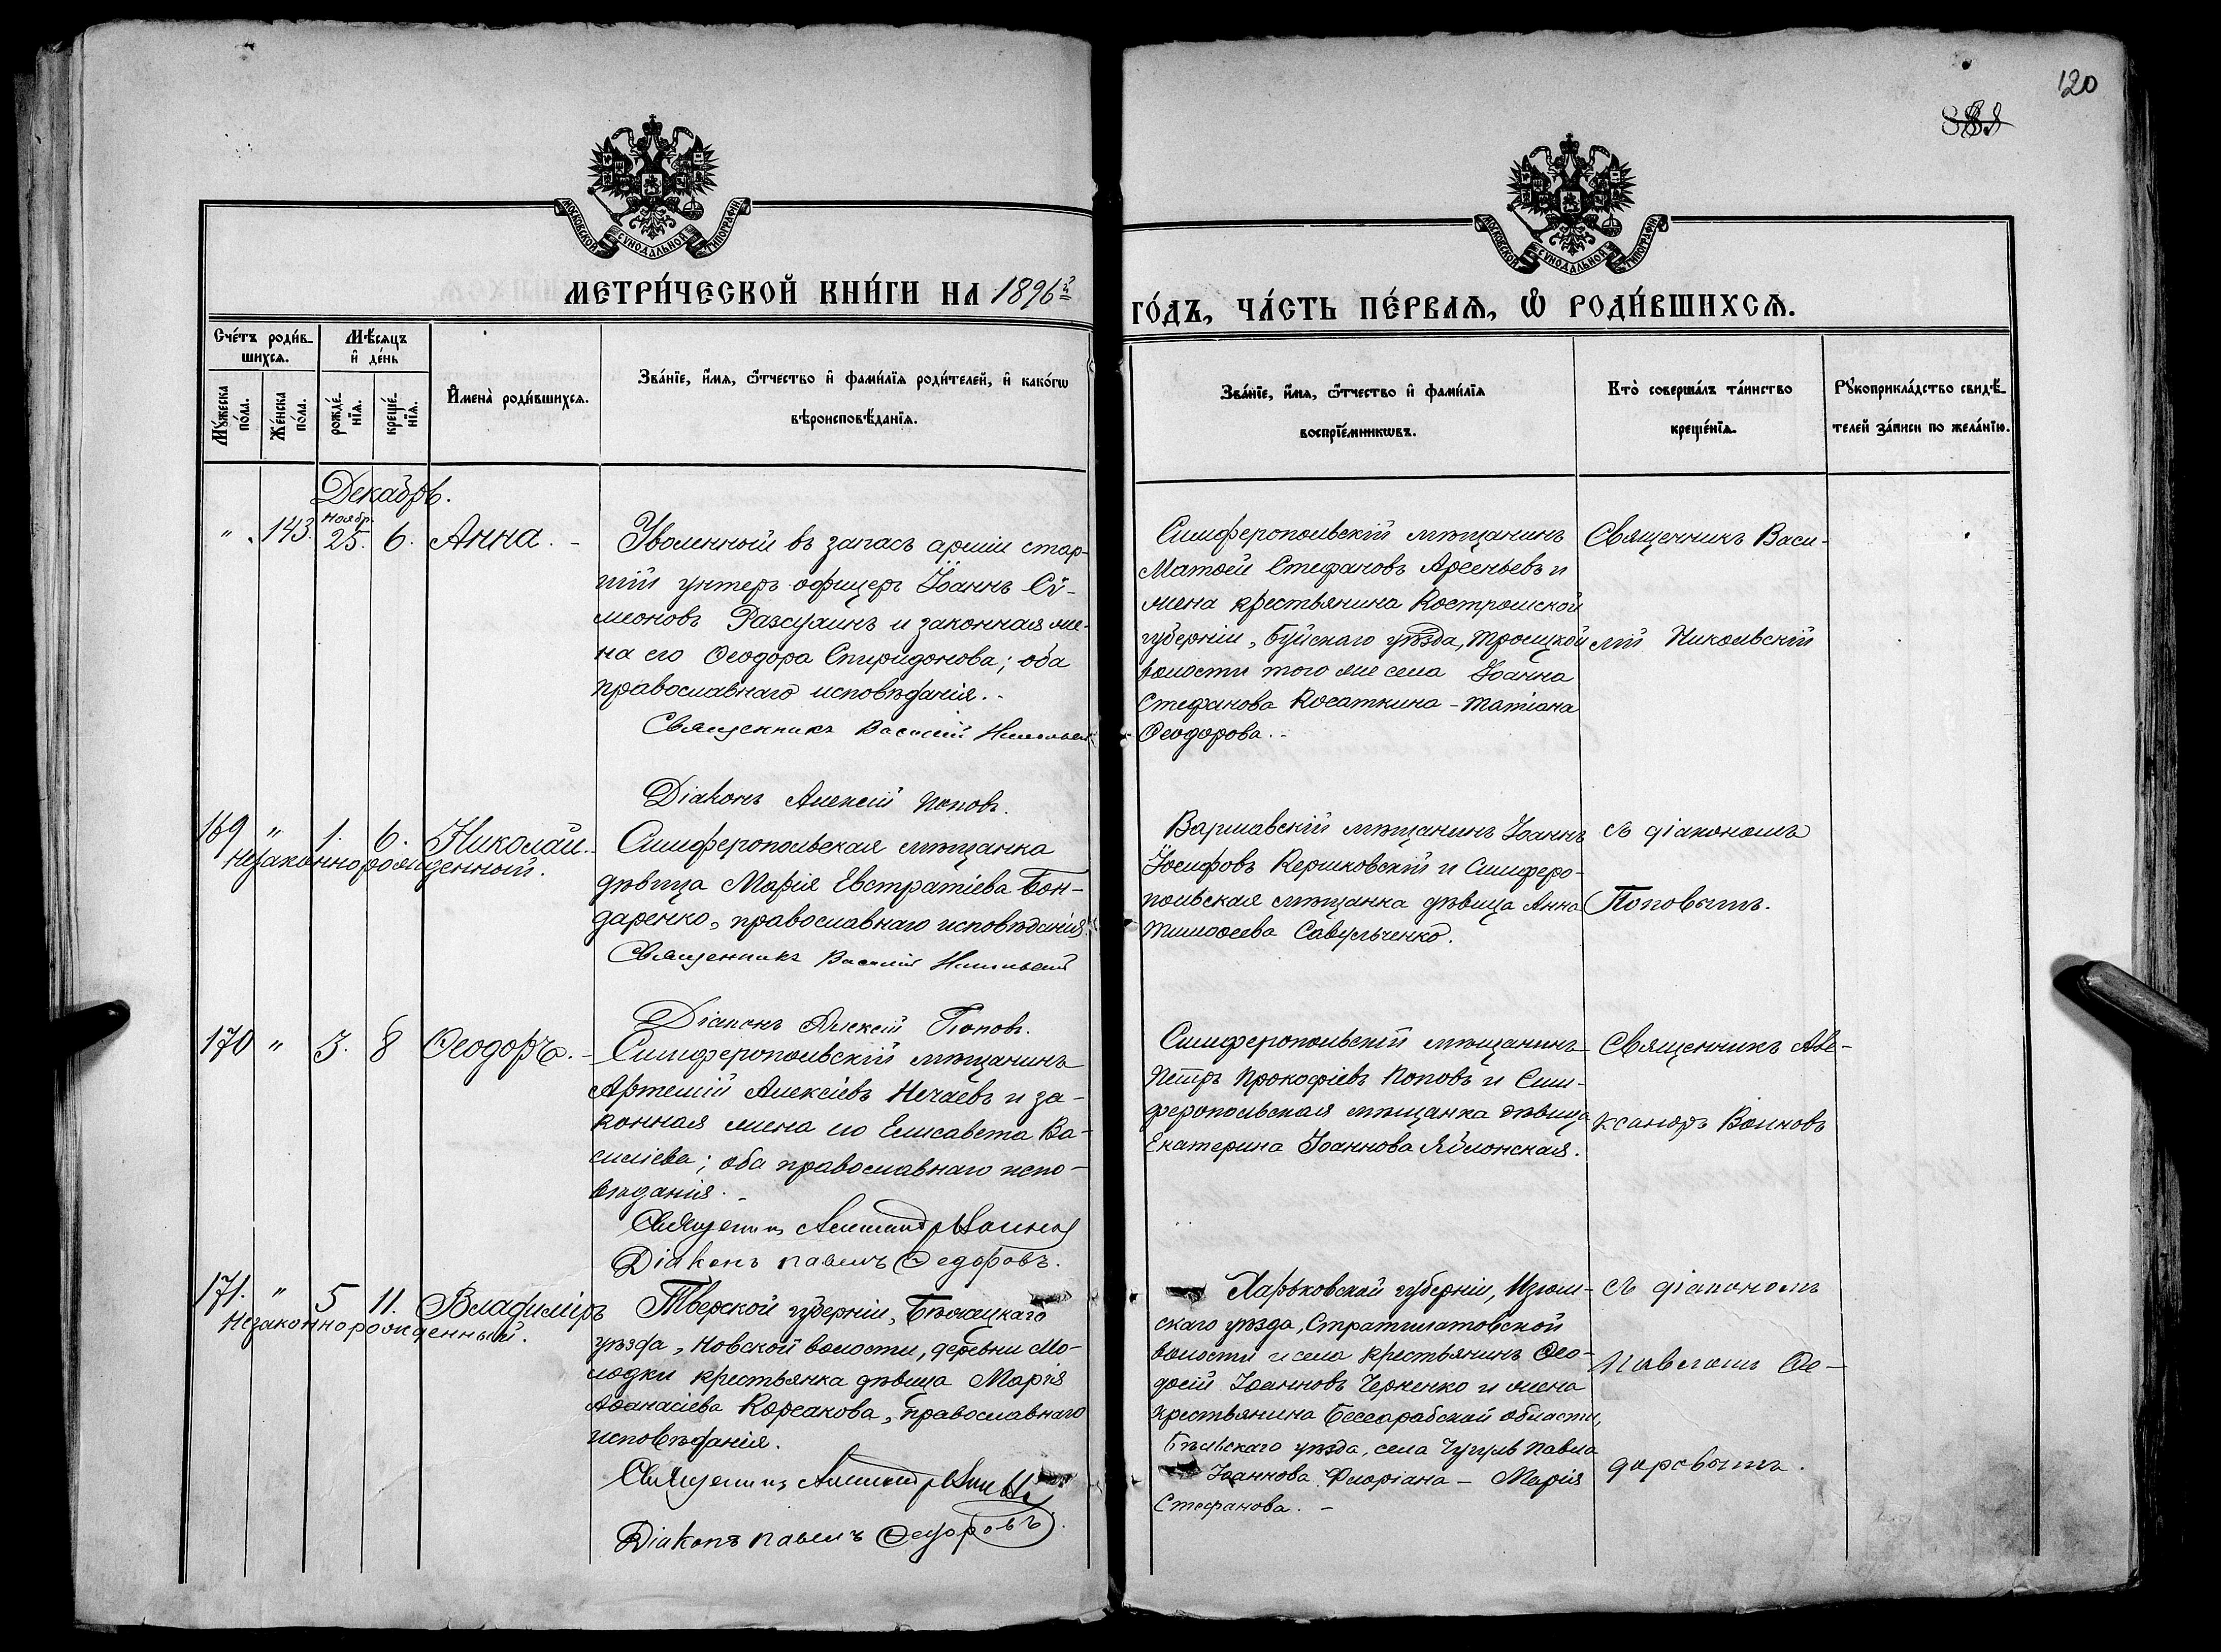 120
МОСКОВСКОЙ СУНОДАЛЬНОЙ ТИПОГРАФІИ
МОСКОВСКОЙ СУНОДАЛЬНОЙ ТИПОГРАФІИ
МЕТРИ́ЧЕСКОЙ КНИ́ГИ НА 1896й
ГО́ДЪ, ЧА́СТЬ ПЕ́РВАЯ, Ѡ РОДИ́ВШИХСЯ.
Сче́тъ роди́в-
шихся.
Мѣсяцъ
и҆ де́нь
Му́жеска
по́ла.
Же́нска
по́ла.
рожде́-
нїя.
креще́-
нїя.
И҆мена̀ роди́вшихся.
Зва́нїе, и҆́мя, ѻ҆́тчество и҆ фами́лїя роди́телей, и҆ како́гѡ
вѣроисповѣ́данїя.
Зва́нїе, и҆́мя, ѻ҆́тчество и҆ фами́лїя
воспрїе́мникѡвъ.
Кто̀ соверша́лъ та́инство
креще́нїя.
Рꙋкоприкла́дство свидѣ́-
телей за́писи по жела́нїю.
Декабрь.
" 143. Ноябр. 25. 6. Анна. -
Уволенный въ запасъ арміи стар-
шій унтеръ-офицеръ Іоаннъ Сѵ-
меоновъ Разсухинъ и законная же-
на его Ѳеодора Спиридонова; оба
православнаго исповѣданія. -
Священникъ Василій Никольскій
Діаконъ Алексій Поповъ.
Симферопольскій мѣщанинъ
Матѳей Стефановъ Арсеньевъ и
жена крестьянина Костромской
губерніи, Буйскаго уѣзда, Троицкой
волости того же села Іоанна
Стефанова Косаткина - Татіана
Ѳеодорова. -
Священникъ Васи-
лій Никольскій
169 " 1. 6. Николай. -
Незаконнорожденный.
Симферопольская мѣщанка
дѣвица Марія Евстратіева Бон-
даренко, православнаго исповѣданія.
Священникъ Василій Никольскій
Діаконъ Алексій Поповъ.
Варшавскій мѣщанинъ Іоаннъ
Іосифовъ Кершковскій и Симферо-
польская мѣщанка дѣвица Анна
Тимоѳеева Савульченко.
съ діакономъ
Поповымъ.
170 " 3. 8 Ѳеодоръ. -
Симферопольскій мѣщанинъ
Артемій Алексіевъ Нечаевъ и за-
конная жена его Елисавета Ва-
силіева; оба православнаго испо-
вѣданія. -
Священникъ Александръ Воиновъ
Діаконъ Павелъ Ѳедоровъ.
Симферопольскій мѣщанинъ
Петръ Прокофіевъ Поповъ и Сим-
феропольская мѣщанка дѣвица
Екатерина Іоаннова Яблонская.
Священникъ Але-
ксандръ Воиновъ
171. " 5 11. Владиміръ
Незаконнорожденный.
Тверской губерніи, Бѣжецкаго
уѣзда, Новской волости, деревни Мо-
лодки крестьянка дѣвица Марія
Аѳанасіева Корсакова, православнаго
исповѣданія.
Священникъ Александръ Воиновъ
Діаконъ Павелъ Ѳедоровъ.
Харьковской губерніи, Изюм-
скаго уѣзда, Стратилатовской
волости и села крестьянинъ Ѳео-
досій Іоанновъ Черненко и жена
крестьянина Бессарабской области,
Бѣльскаго уѣзда, села Чугуль Павла
Іоаннова Флоріана - Марія
Стефанова. -
съ діакономъ
Павломъ Ѳе-
доровымъ.